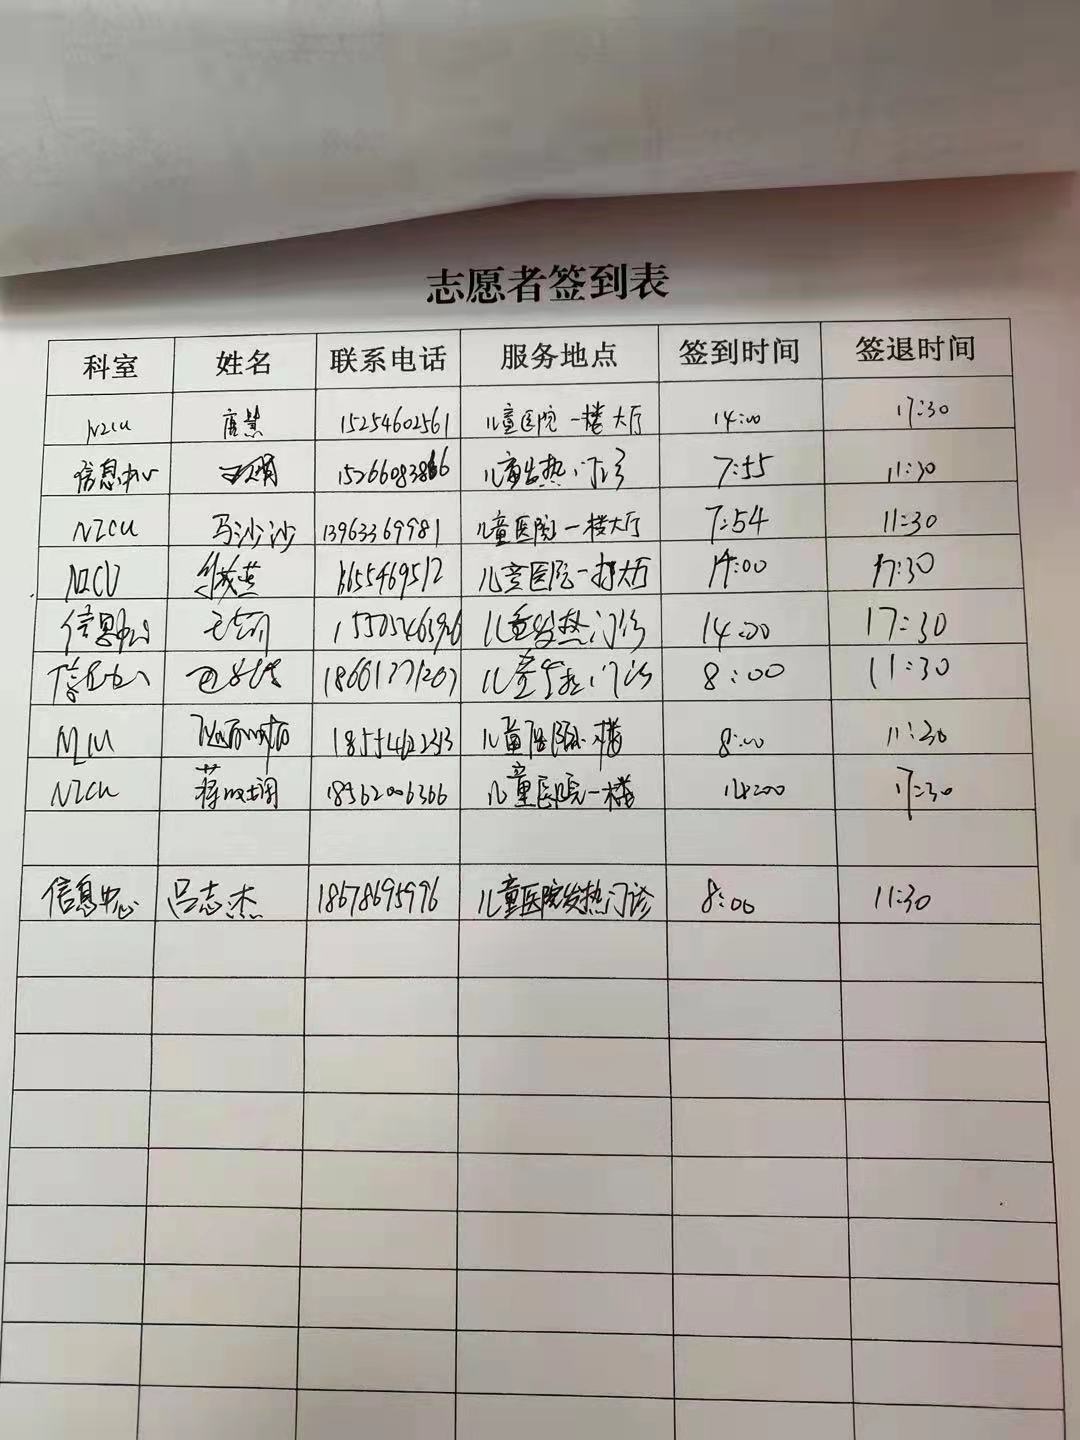 志愿者签到表
科室 姓名 联系电话 服务地点 签到时间 签退时间
NICU 唐慧 15254602561 儿童医院一楼大厅 14:00 17:30
信息中心 15266083866 儿童发热门诊 7:55 11:30
NICU 马沙沙 13963369981 儿童医院一楼大厅 7:54 11:30
NICU 儿童医院一楼大厅 14:00 17:30
信息中心 儿童发热门诊 14:00 17:30
信息中心 18661771207 儿童发热门诊 8:00 11:30
儿童医院一楼 8:00 11:30
NICU 18562006366 儿童医院一楼 14:00 17:30
信息中心 吕志杰 18678695996 儿童医院发热门诊 8:00 11:30